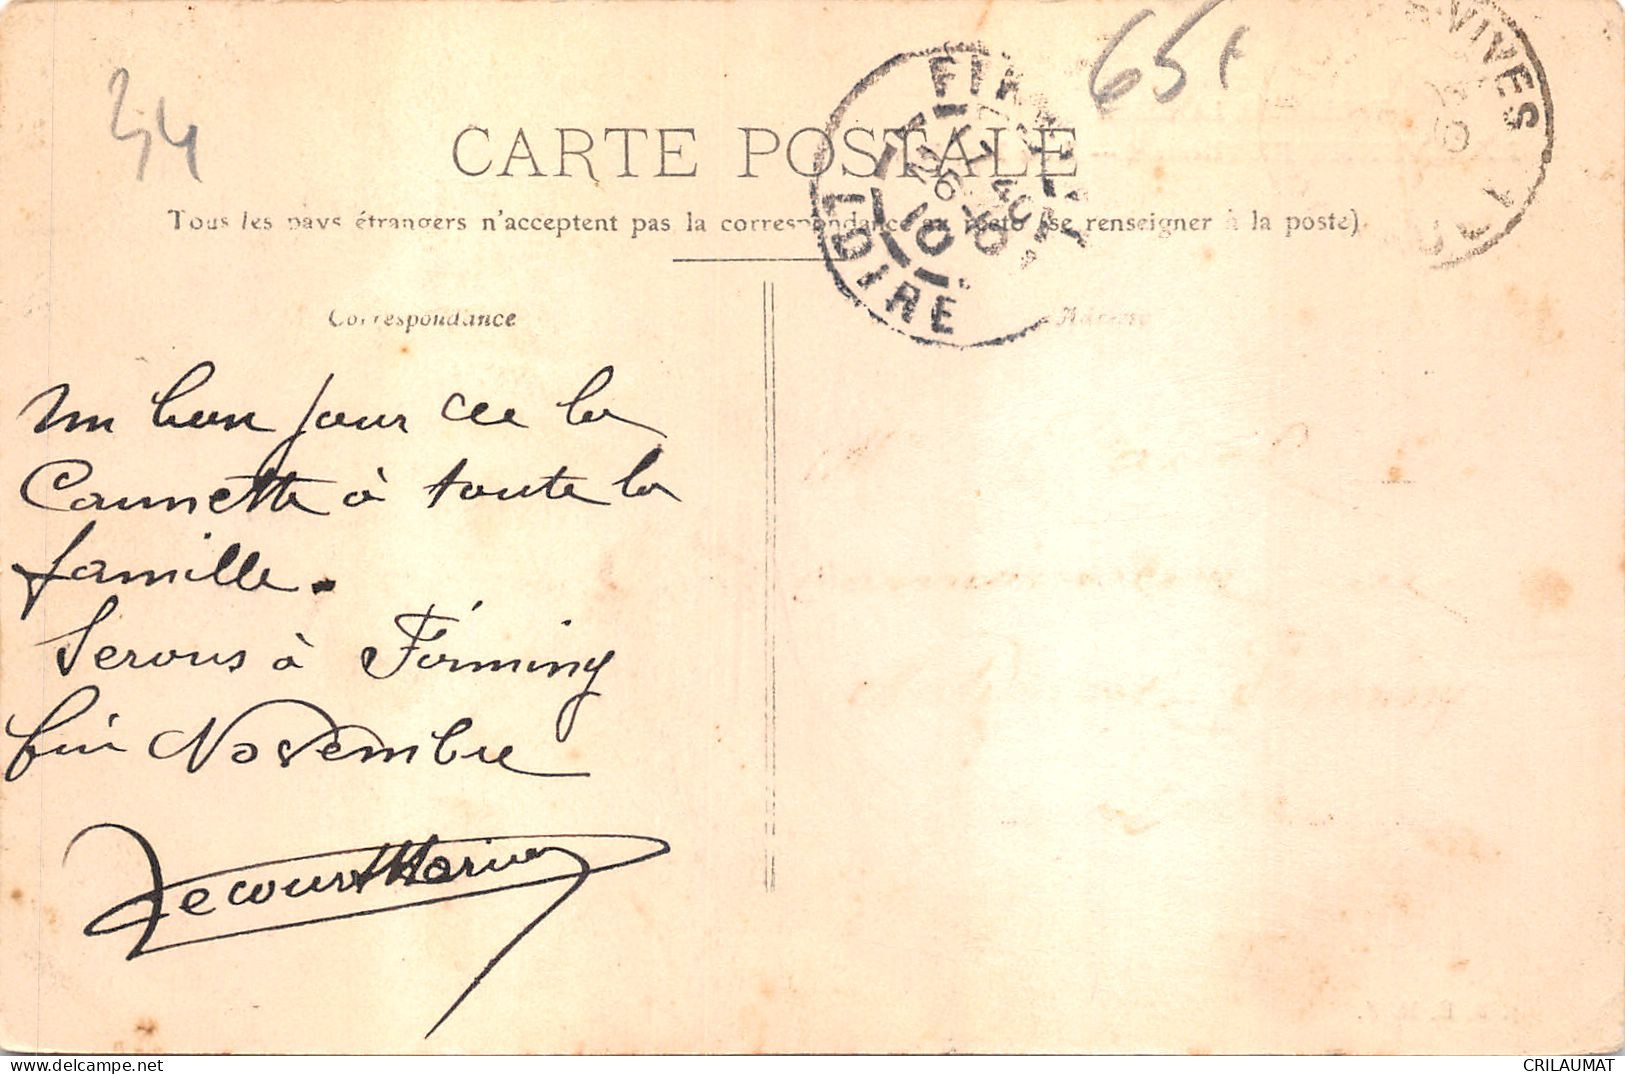 34
65 €
CARTE POSTALE
Tous les pays étrangers n'acceptent pas la correspondance au recto (se renseigner à la poste)
FIRMINY
LOIRE
7 40
26 - 10
10
VIVES
Correspondance
Adresse
un bon jour de la
Caunette à toute la
famille.
Serons à Firminy
fin Novembre
Decourt Marius
CRILAUMAT